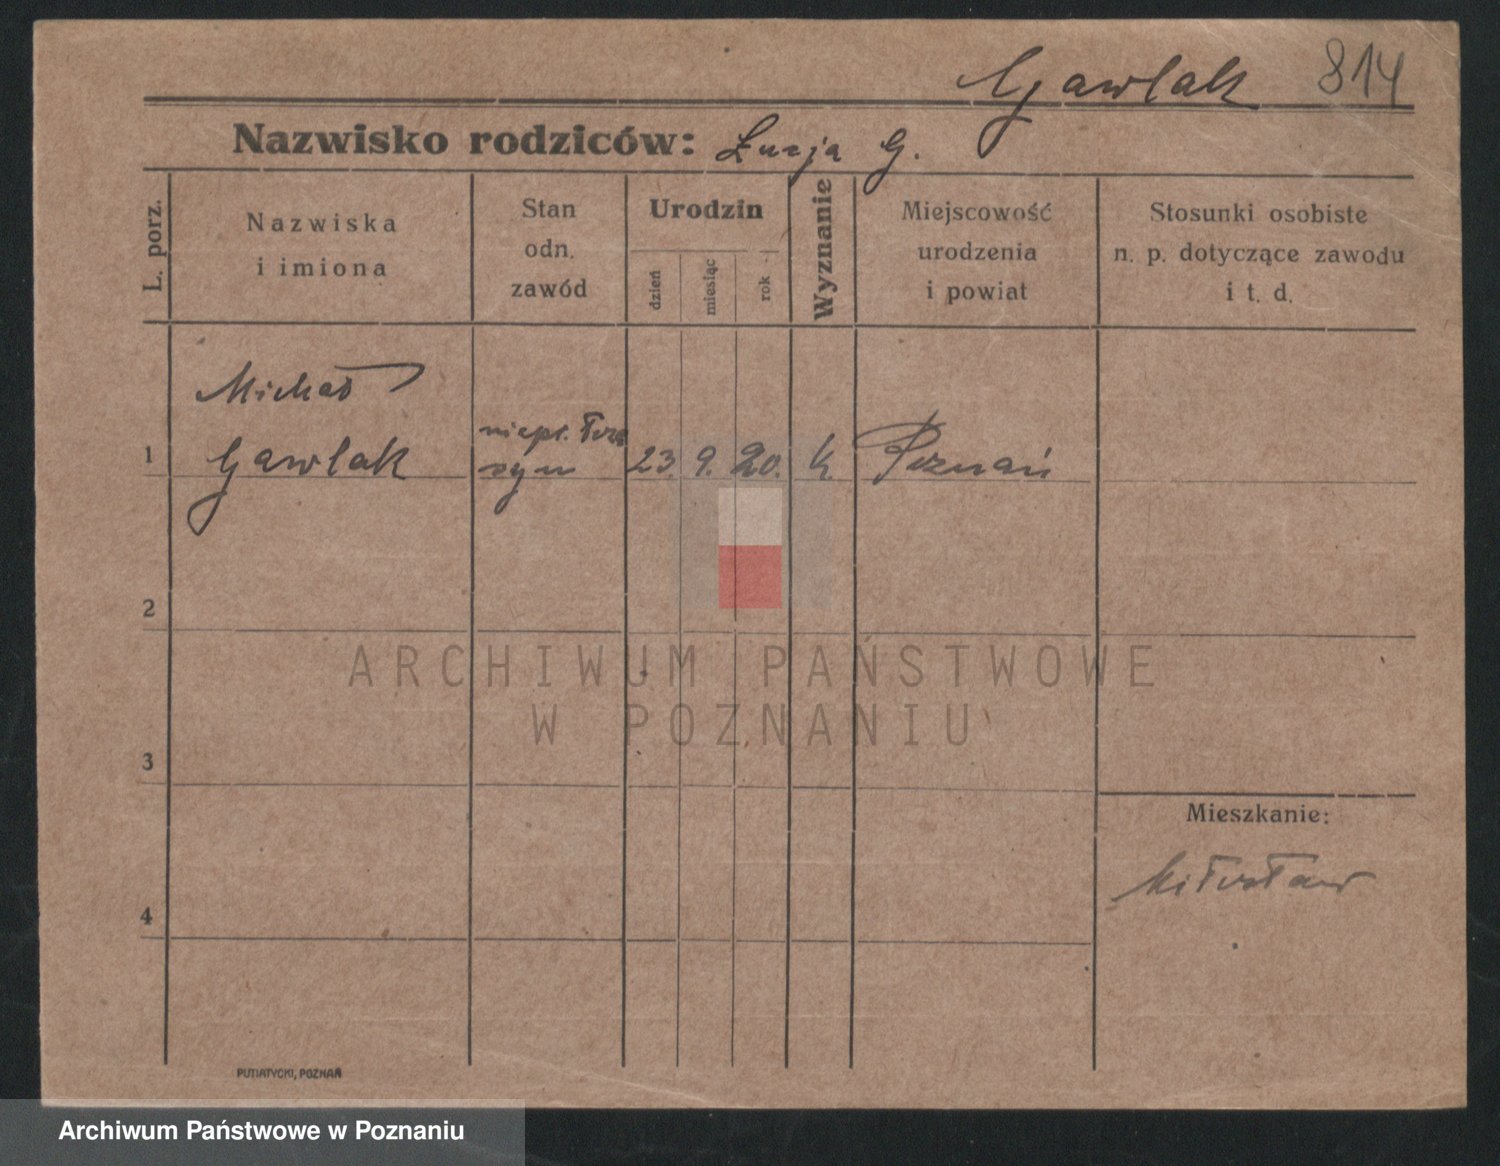 Gawlak 814
Nazwisko rodziców: Łucja G.
L. porz.
Nazwiska
i imiona
Stan
odn.
zawód
Urodzin
dzień
miesiąc
rok
Wyznanie
Miejscowość
urodzenia
i powiat
Stosunki osobiste
n. p. dotyczące zawodu
i t. d.
Michał
1 Gawlak syn 23. 9. 20. k. Poznań
2
3
4
Mieszkanie:
Miłosław
PUTIATYCKI, POZNAŃ
ARCHIWUM PAŃSTWOWE
W POZNANIU
Archiwum Państwowe w Poznaniu